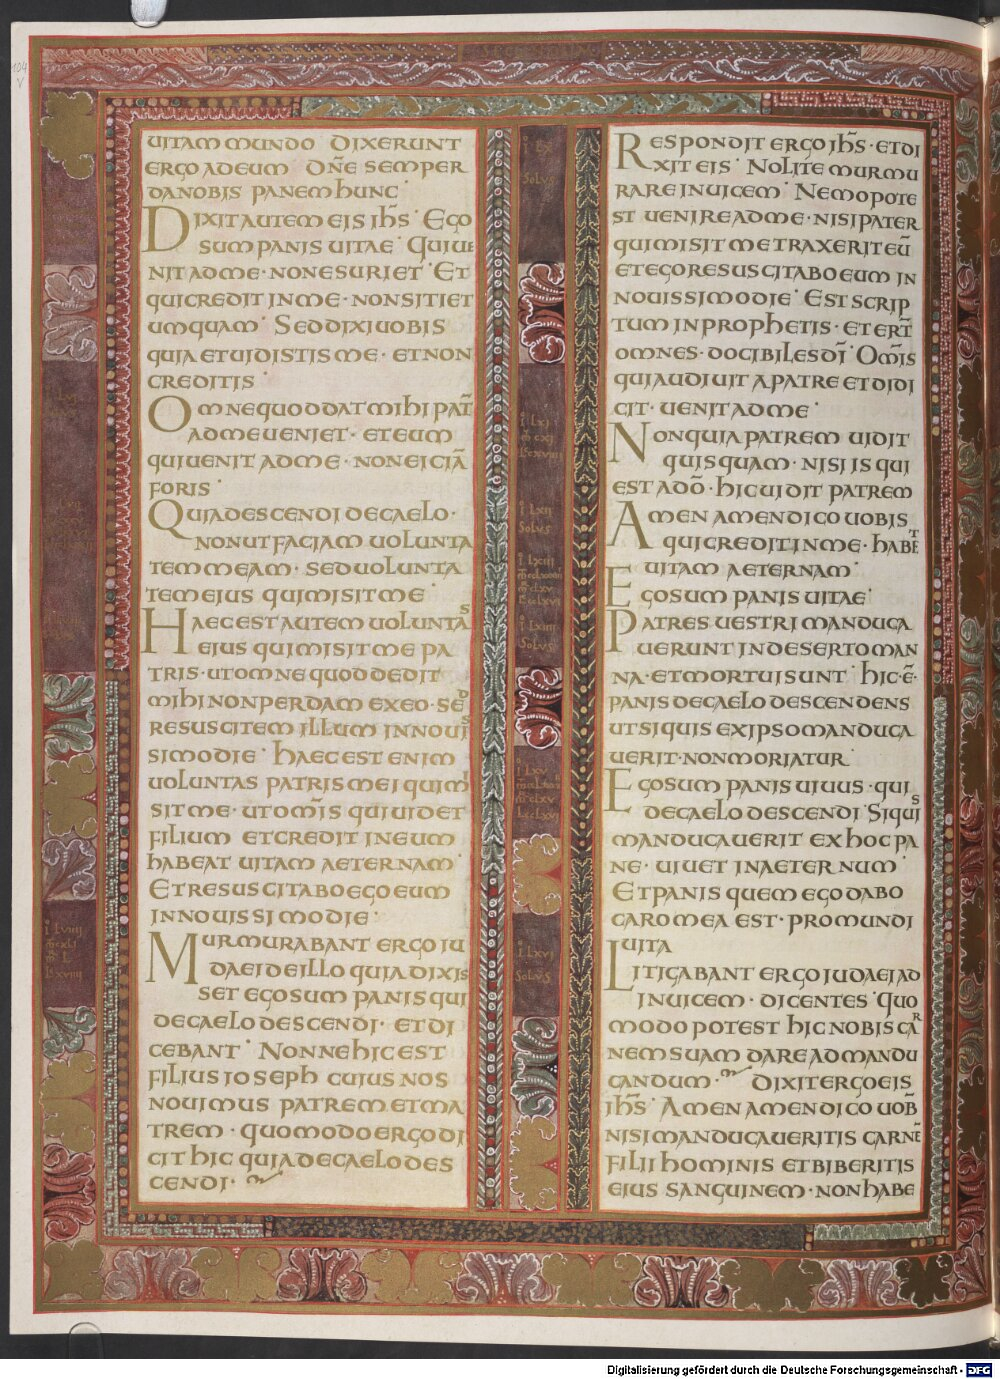 104
v
UITAM MUNDO DIXERUNT
ERGO AD EUM DÑE SEMPER
DA NOBIS PANEM HUNC·
DIXIT AUTEM EIS IHS̄· EGO
SUM PANIS UITAE· QUI UE
NIT AD ME· NON ESURIET· ET
QUI CREDIT IN ME· NON SITIET
UMQUAM· SED DIXI UOBIS
QUIA ET UIDISTIS ME· ET NON
CREDITIS·
OMNE QUOD DAT MIHI PAT̄
AD ME UENIET· ET EUM
QUI UENIT AD ME· NON EICIĀ
FORIS·
QUIA DESCENDI DE CAELO·
NON UT FACIAM UOLUNTA
TEM MEAM· SED UOLUNTA
TEM EIUS QUI MISIT ME·
HAEC EST AUTEM UOLUNTAS
EIUS QUI MISIT ME PA
TRIS· UT OMNE QUOD DEDIT
MIHI NON PERDAM EX EO· SED
RESUSCITEM ILLUM IN NOUIS
SIMO DIE· HAEC EST ENIM
UOLUNTAS PATRIS MEI QUI MI
SIT ME· UT OM̄IS QUI UIDET
FILIUM ET CREDIT IN EUM
HABEAT UITAM AETERNAM·
ET RESUSCITABO EGO EUM
IN NOUISSIMO DIE·
MURMURABANT ERGO IU
DAEI DE ILLO QUIA DIXIS
SET EGO SUM PANIS QUI
DE CAELO DESCENDI· ET DI
CEBANT· NONNE HIC EST
FILIUS IOSEPH CUIUS NOS
NOUIMUS PATREM ET MA
TREM· QUOMODO ERGO DI
CIT HIC QUIA DE CAELO DES
CENDI·
I LVIIII
I LXI
I LXII
SOLUS
I LXIII
I LXIIII
SOLUS
I LXV
I LXVI
SOLUS
RESPONDIT ERGO IHS̄· ET DI
XIT EIS· NOLITE MURMU
RARE IN UICEM· NEMO POTE
ST UENIRE AD ME· NISI PATER
QUI MISIT ME TRAXERIT EŪ
ET EGO RESUSCITABO EUM IN
NOUISSIMO DIE· EST SCRIP
TUM IN PROPHETIS· ET ERT̄
OMNES· DOCIBILES DĪ· OM̄IS
QUI AUDIUIT A PATRE ET DIDI
CIT· UENIT AD ME·
NON QUIA PATREM UIDIT
QUISQUAM· NISI IS QUI
EST A DŌ· HIC UIDIT PATREM
AMEN AMEN DICO UOBIS
QUI CREDIT IN ME· HABET
UITAM AETERNAM·
EGO SUM PANIS UITAE·
PATRES UESTRI MANDUCA
UERUNT IN DESERTO MAN
NA· ET MORTUI SUNT· HIC Ē·
PANIS DE CAELO DESCENDENS
UT SI QUIS EX IPSO MANDUCA
UERIT· NON MORIATUR·
EGO SUM PANIS UIUUS· QUI
DE CAELO DESCENDI· SI QUIS
MANDUCAUERIT EX HOC PA
NE· UIUET IN AETERNUM·
ET PANIS QUEM EGO DABO
CARO MEA EST· PRO MUNDI
UITA
LITIGABANT ERGO IUDAEI AD
INUICEM· DICENTES· QUO
MODO POTEST HIC NOBIS CAR
NEM SUAM DARE AD MANDU
CANDUM· DIXIT ERGO EIS
IHS̄· AMEN AMEN DICO UOB̄
NISI MANDUCAUERITIS CARNĒ
FILII HOMINIS ET BIBERITIS
EIUS SANGUINEM· NON HABE
Digitalisierung gefördert durch die Deutsche Forschungsgemeinschaft - DFG